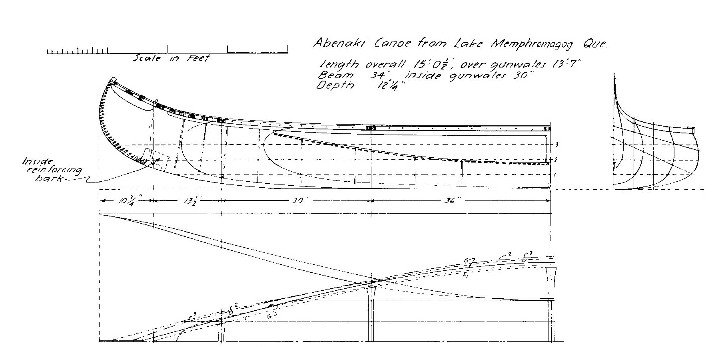 Abenaki Canoe from Lake Memphremagog Que.
Scale in Feet
Length overall 15' 0½", over gunwales 13' 7"
Beam 34" inside gunwales 30"
Depth 12¼"
Inside
reinforcing
bark
10¼" 13½" 30" 36"